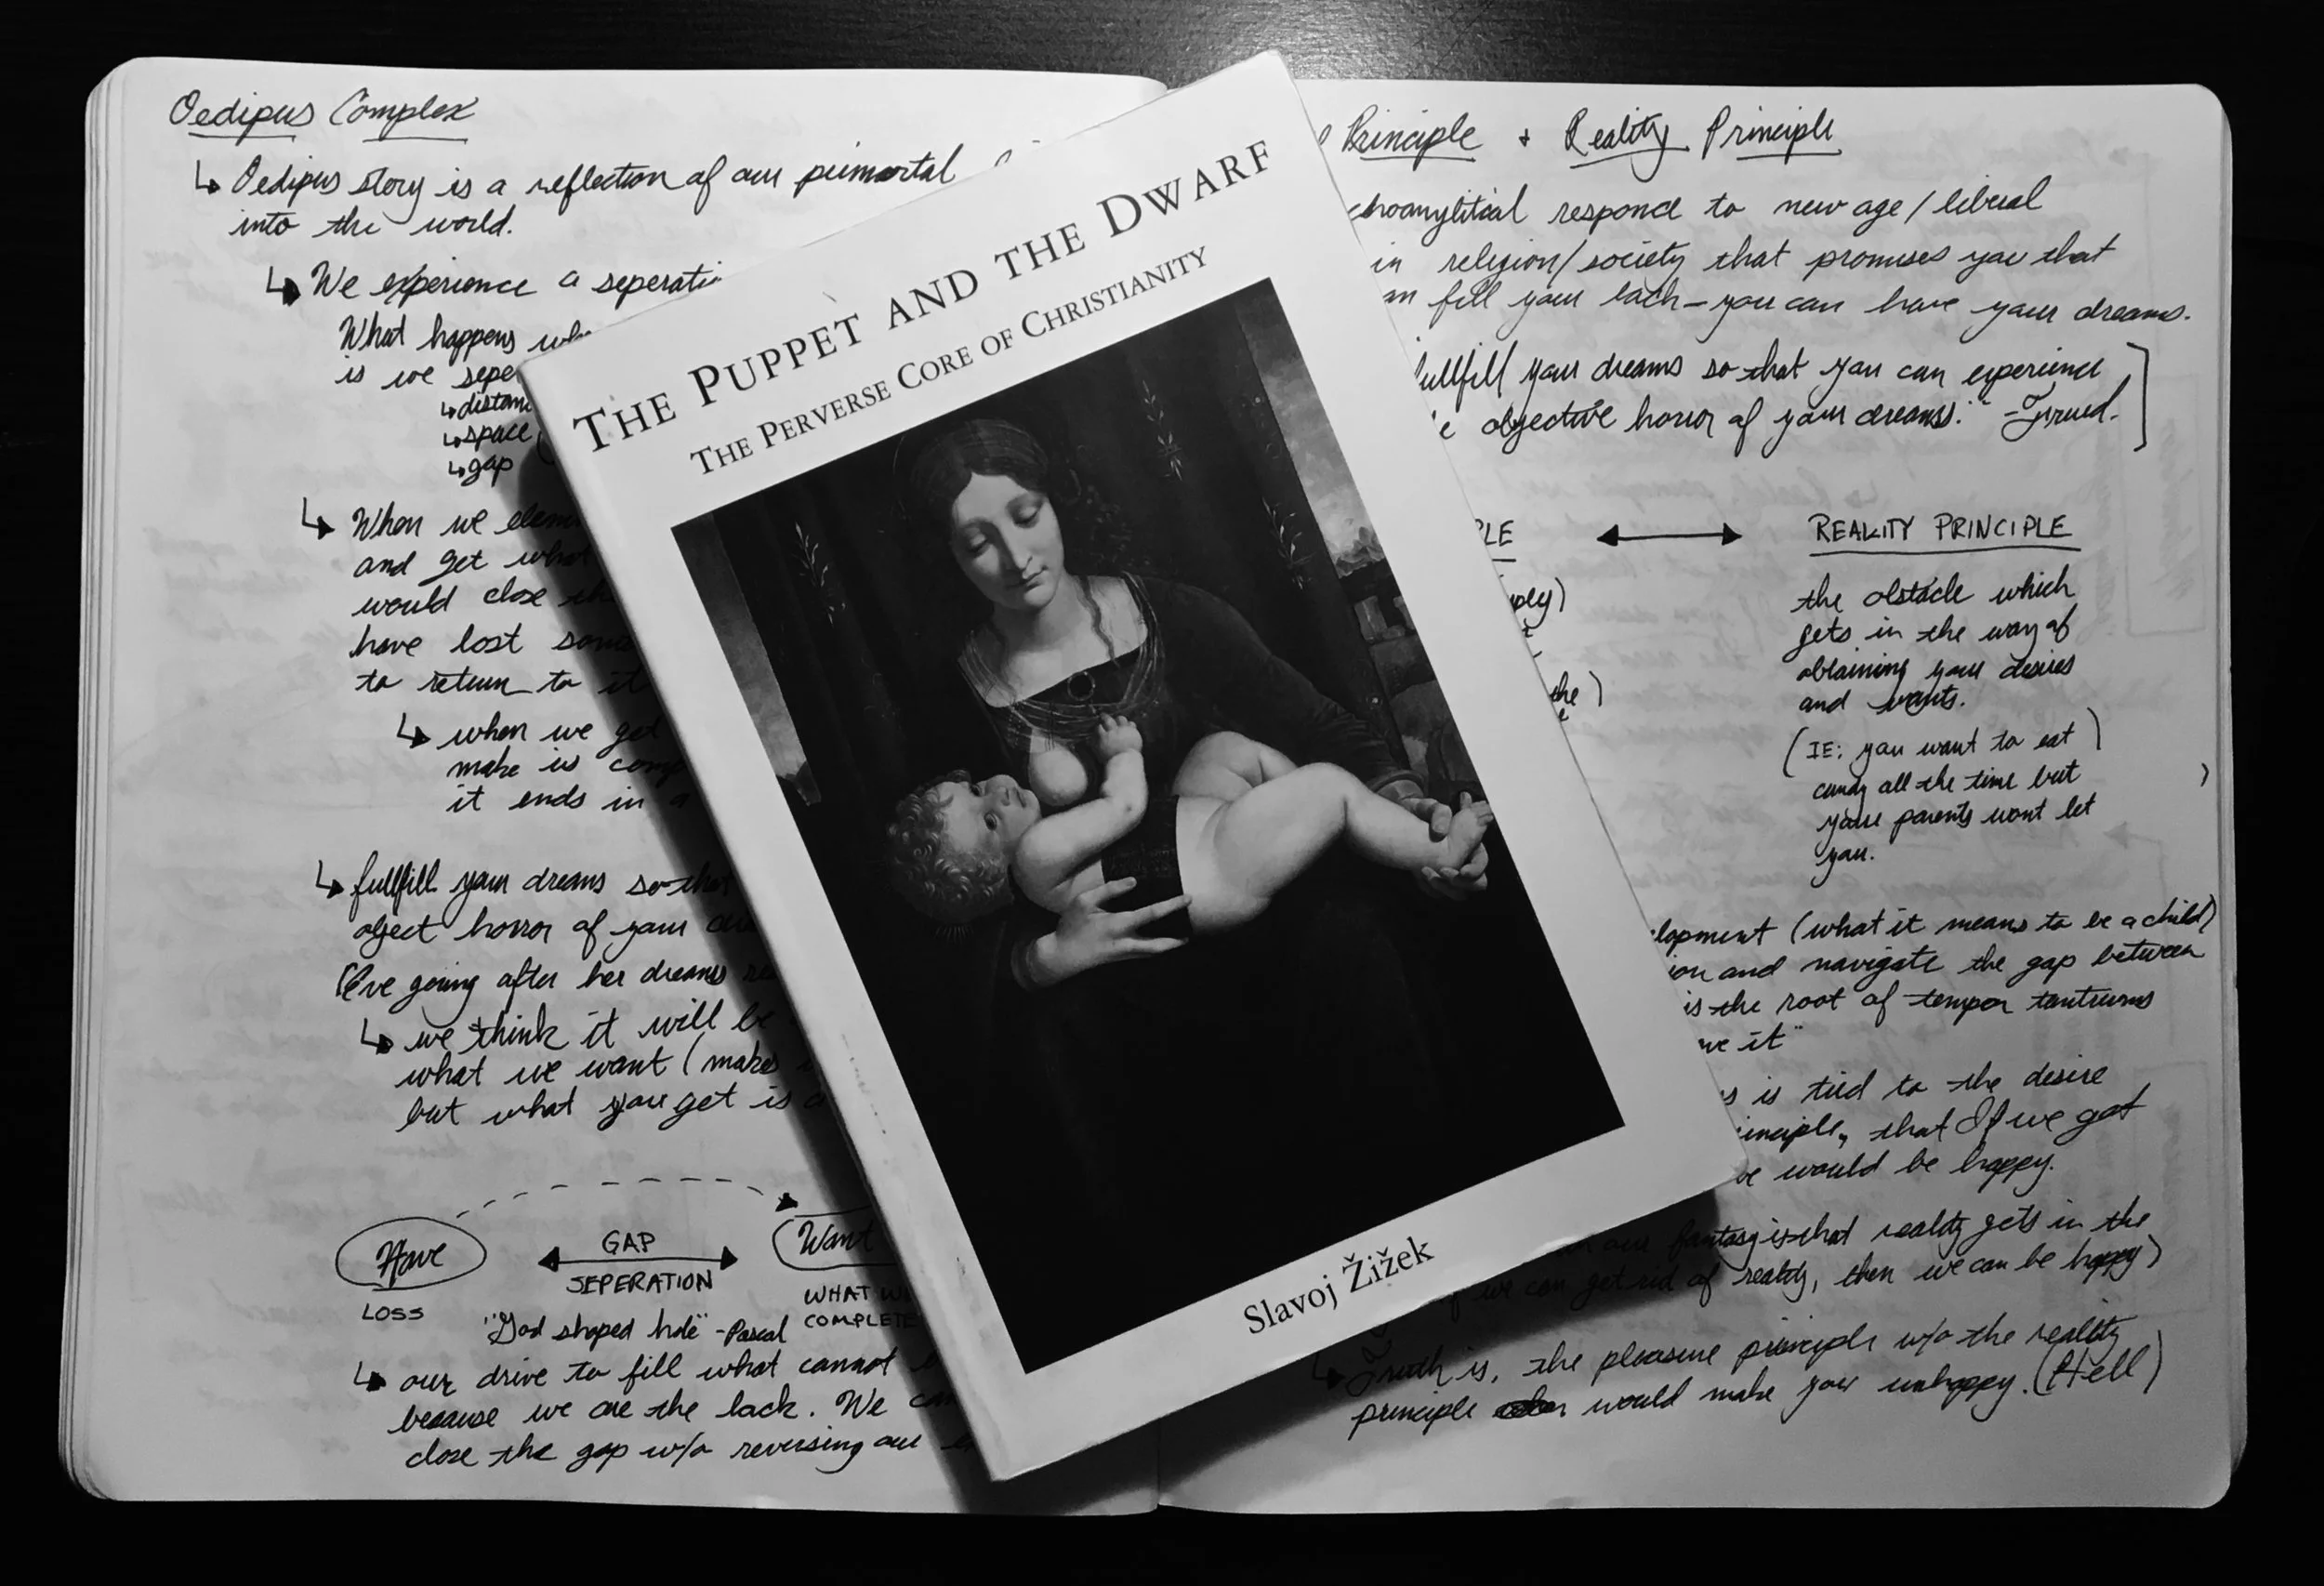 Oedipus Complex
↳ Oedipus story is a reflection of our primortal
into the world.
↳ We experience a seperati
What happens wh
is we seper
↳ distanc
↳ space
↳ gap
↳ When we elem
and get what
would close the
have lost some
to return to it
↳ when we get
make us comp
it ends in a
↳ fullfill your dreams so that
object horror of your
(Eve going after her dreams
↳ we think it will be
what we want (makes
but what you get is a
Have
GAP
Want
LOSS
SEPERATION
WHAT W
COMPLETE
"God shaped hole" - Pascal
↳ our drive to fill what cannot
because we are the lack. We can
close the gap w/o reversing our
THE PUPPET AND THE DWARF
THE PERVERSE CORE OF CHRISTIANITY
Slavoj Žižek
Principle + Reality Principle
choanylitical respond to new age / liberal
in religion/society that promises you that
an fill your lack - you can have your dreams.
fullfill your dreams so that you can experience
e objective horror of your dreams." - Frued.
PLE
REALITY PRINCIPLE
ply)
the obstacle which
gets in the way of
obtaining your desires
the)
and wants.
(IE: you want to eat)
candy all the time but
your parents wont let
you.
lopment (what it means to be a child)
ion and navigate the gap between
is the root of temper tantrums
ve it"
s is tied to the desire
rinciple, that If we got
we would be happy.
our fantasy is that reality gets in the
we can get rid of reality, then we can be happy)
↳ Truth is, the pleasure principle w/o the reality
principle would make you unhappy. (Hell)